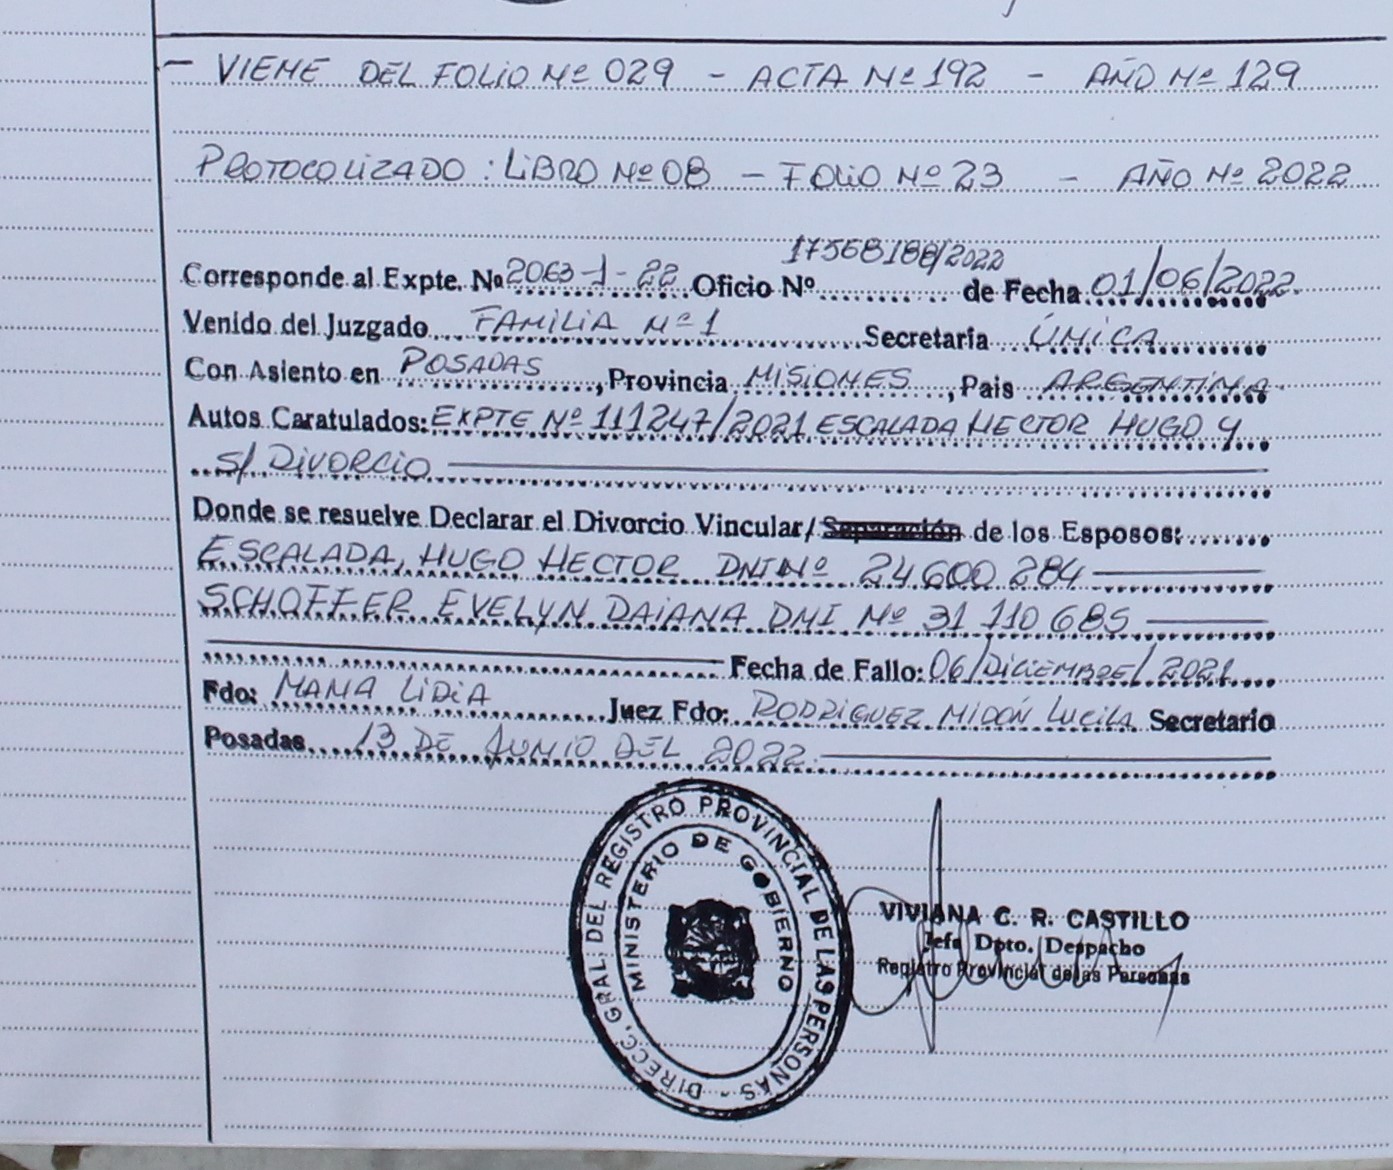 - VIENE DEL FOLIO Nº 029 - ACTA Nº 192 - AÑO Nº 129
PROTOCOLIZADO : LIBRO Nº 08 - FOLIO Nº 23 - AÑO Nº 2022
17568188/2022
Corresponde al Expte. Nº 2063-1-22 Oficio Nº.......... de Fecha 01/06/2022
Venido del Juzgado FAMILIA Nº 1 Secretaría ÚNICA
Con Asiento en POSADAS, Provincia MISIONES, Pais ARGENTINA
Autos Caratulados: EXPTE Nº 111247/2021 ESCALADA HECTOR HUGO Y
S/ DIVORCIO
Donde se resuelve Declarar el Divorcio Vincular/Separación de los Esposos:
ESCALADA, HUGO HECTOR DNI Nº 24.600.284
SCHOFFER EVELYN DAIANA DNI Nº 31 110 685
Fecha de Fallo: 06/DICIEMBRE/2021
Fdo: MARIA LIDIA Juez Fdo: RODRIGUEZ MIDÓN LUCILA Secretario
Posadas 13 DE JUNIO DEL 2022.
DIRECC. GRAL. DEL REGISTRO PROVINCIAL DE LAS PERSONAS
MINISTERIO DE GOBIERNO
VIVIANA C. R. CASTILLO
Jefa Dpto. Despacho
Registro Provincial de las Personas